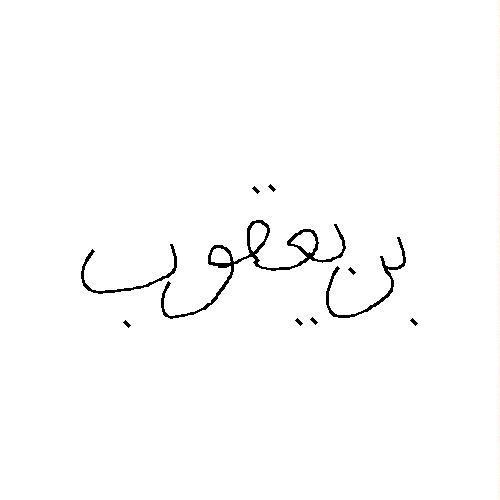 بن يعقوب